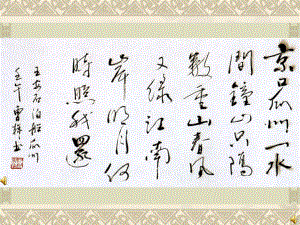 京口瓜州一水
間鐘山只隔
數重山春風
又綠江南
岸明月何
時照我還
王安石泊船瓜州
壬午